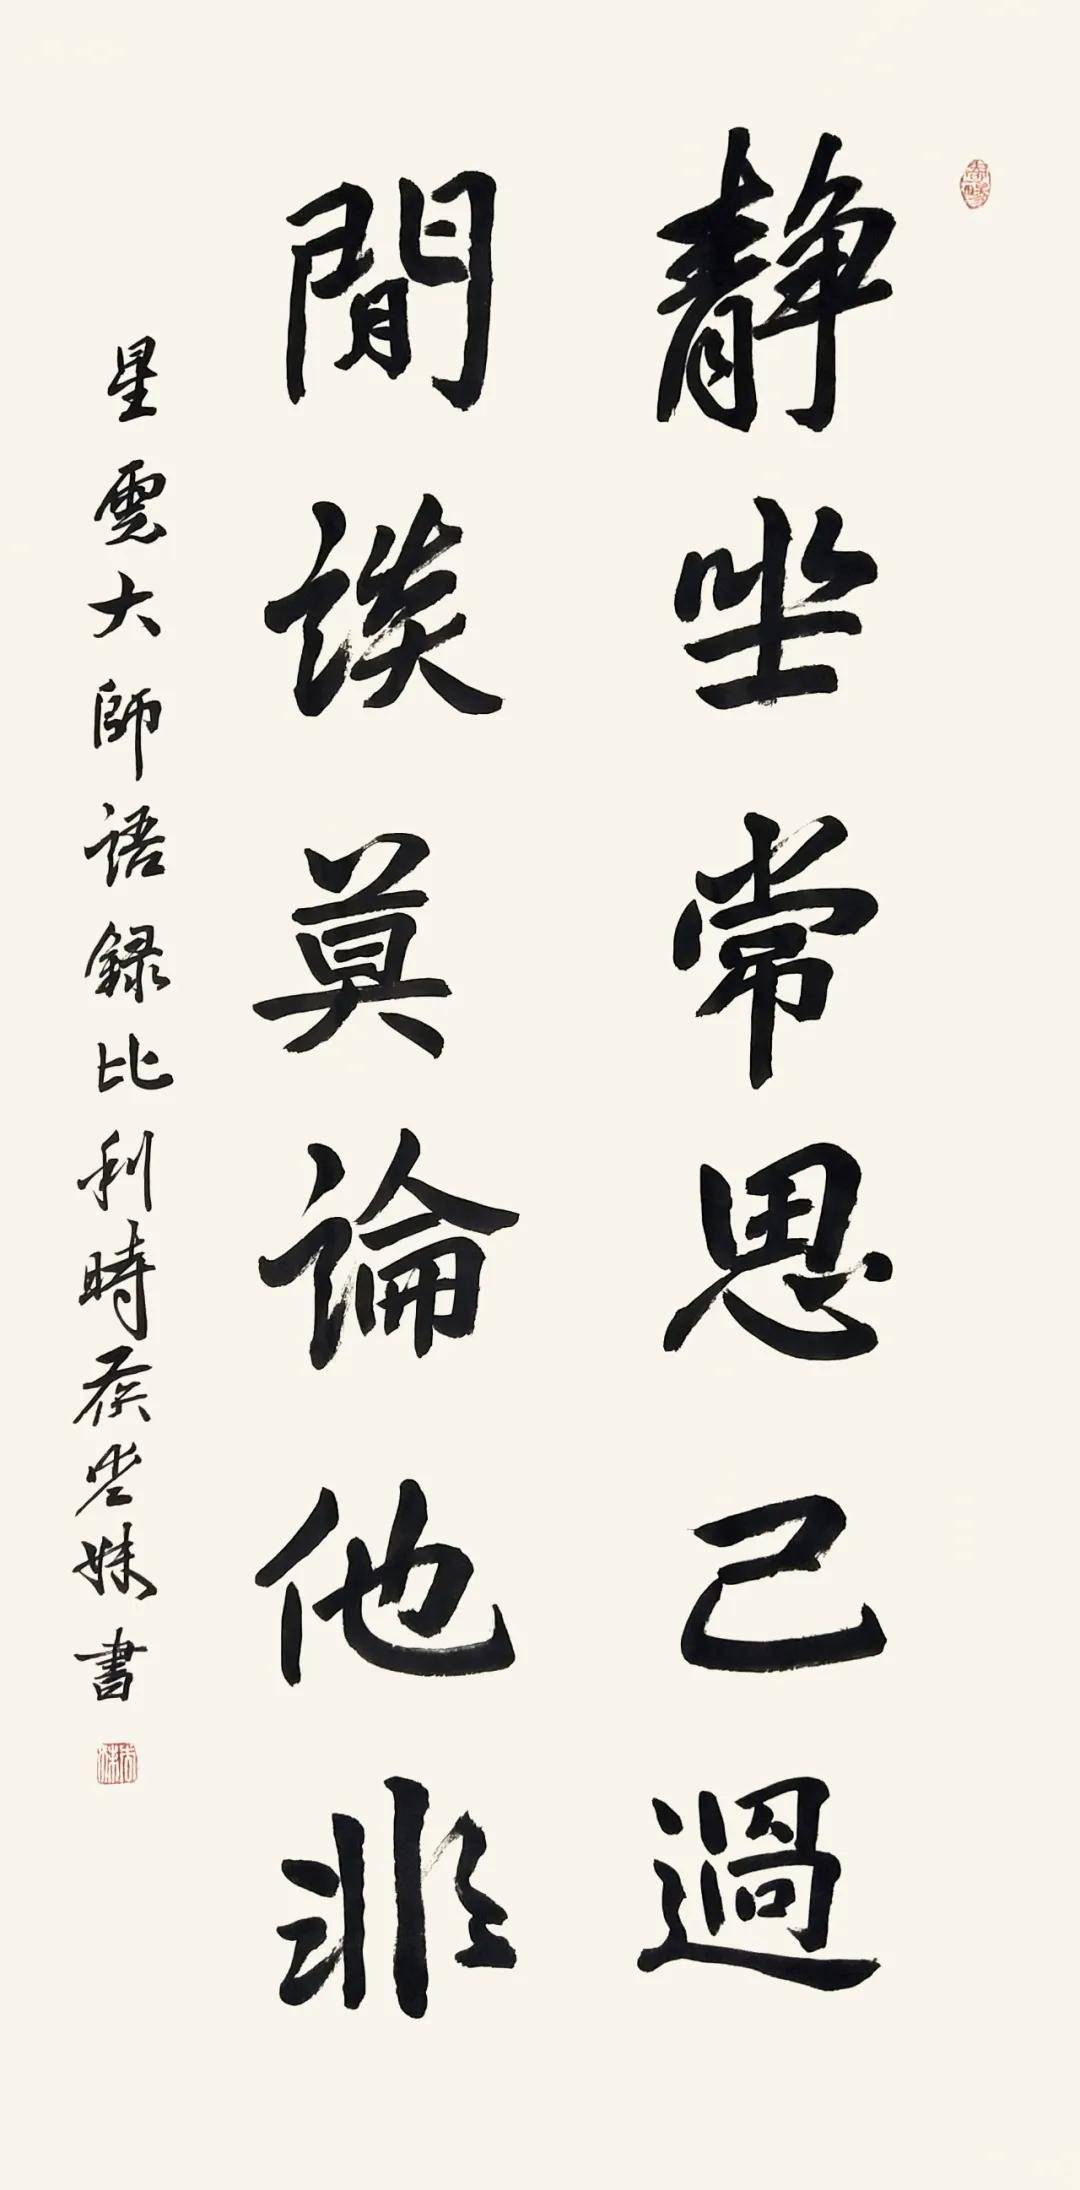 静坐常思己過
閒談莫論他非
星雲大師語録比利時妹書